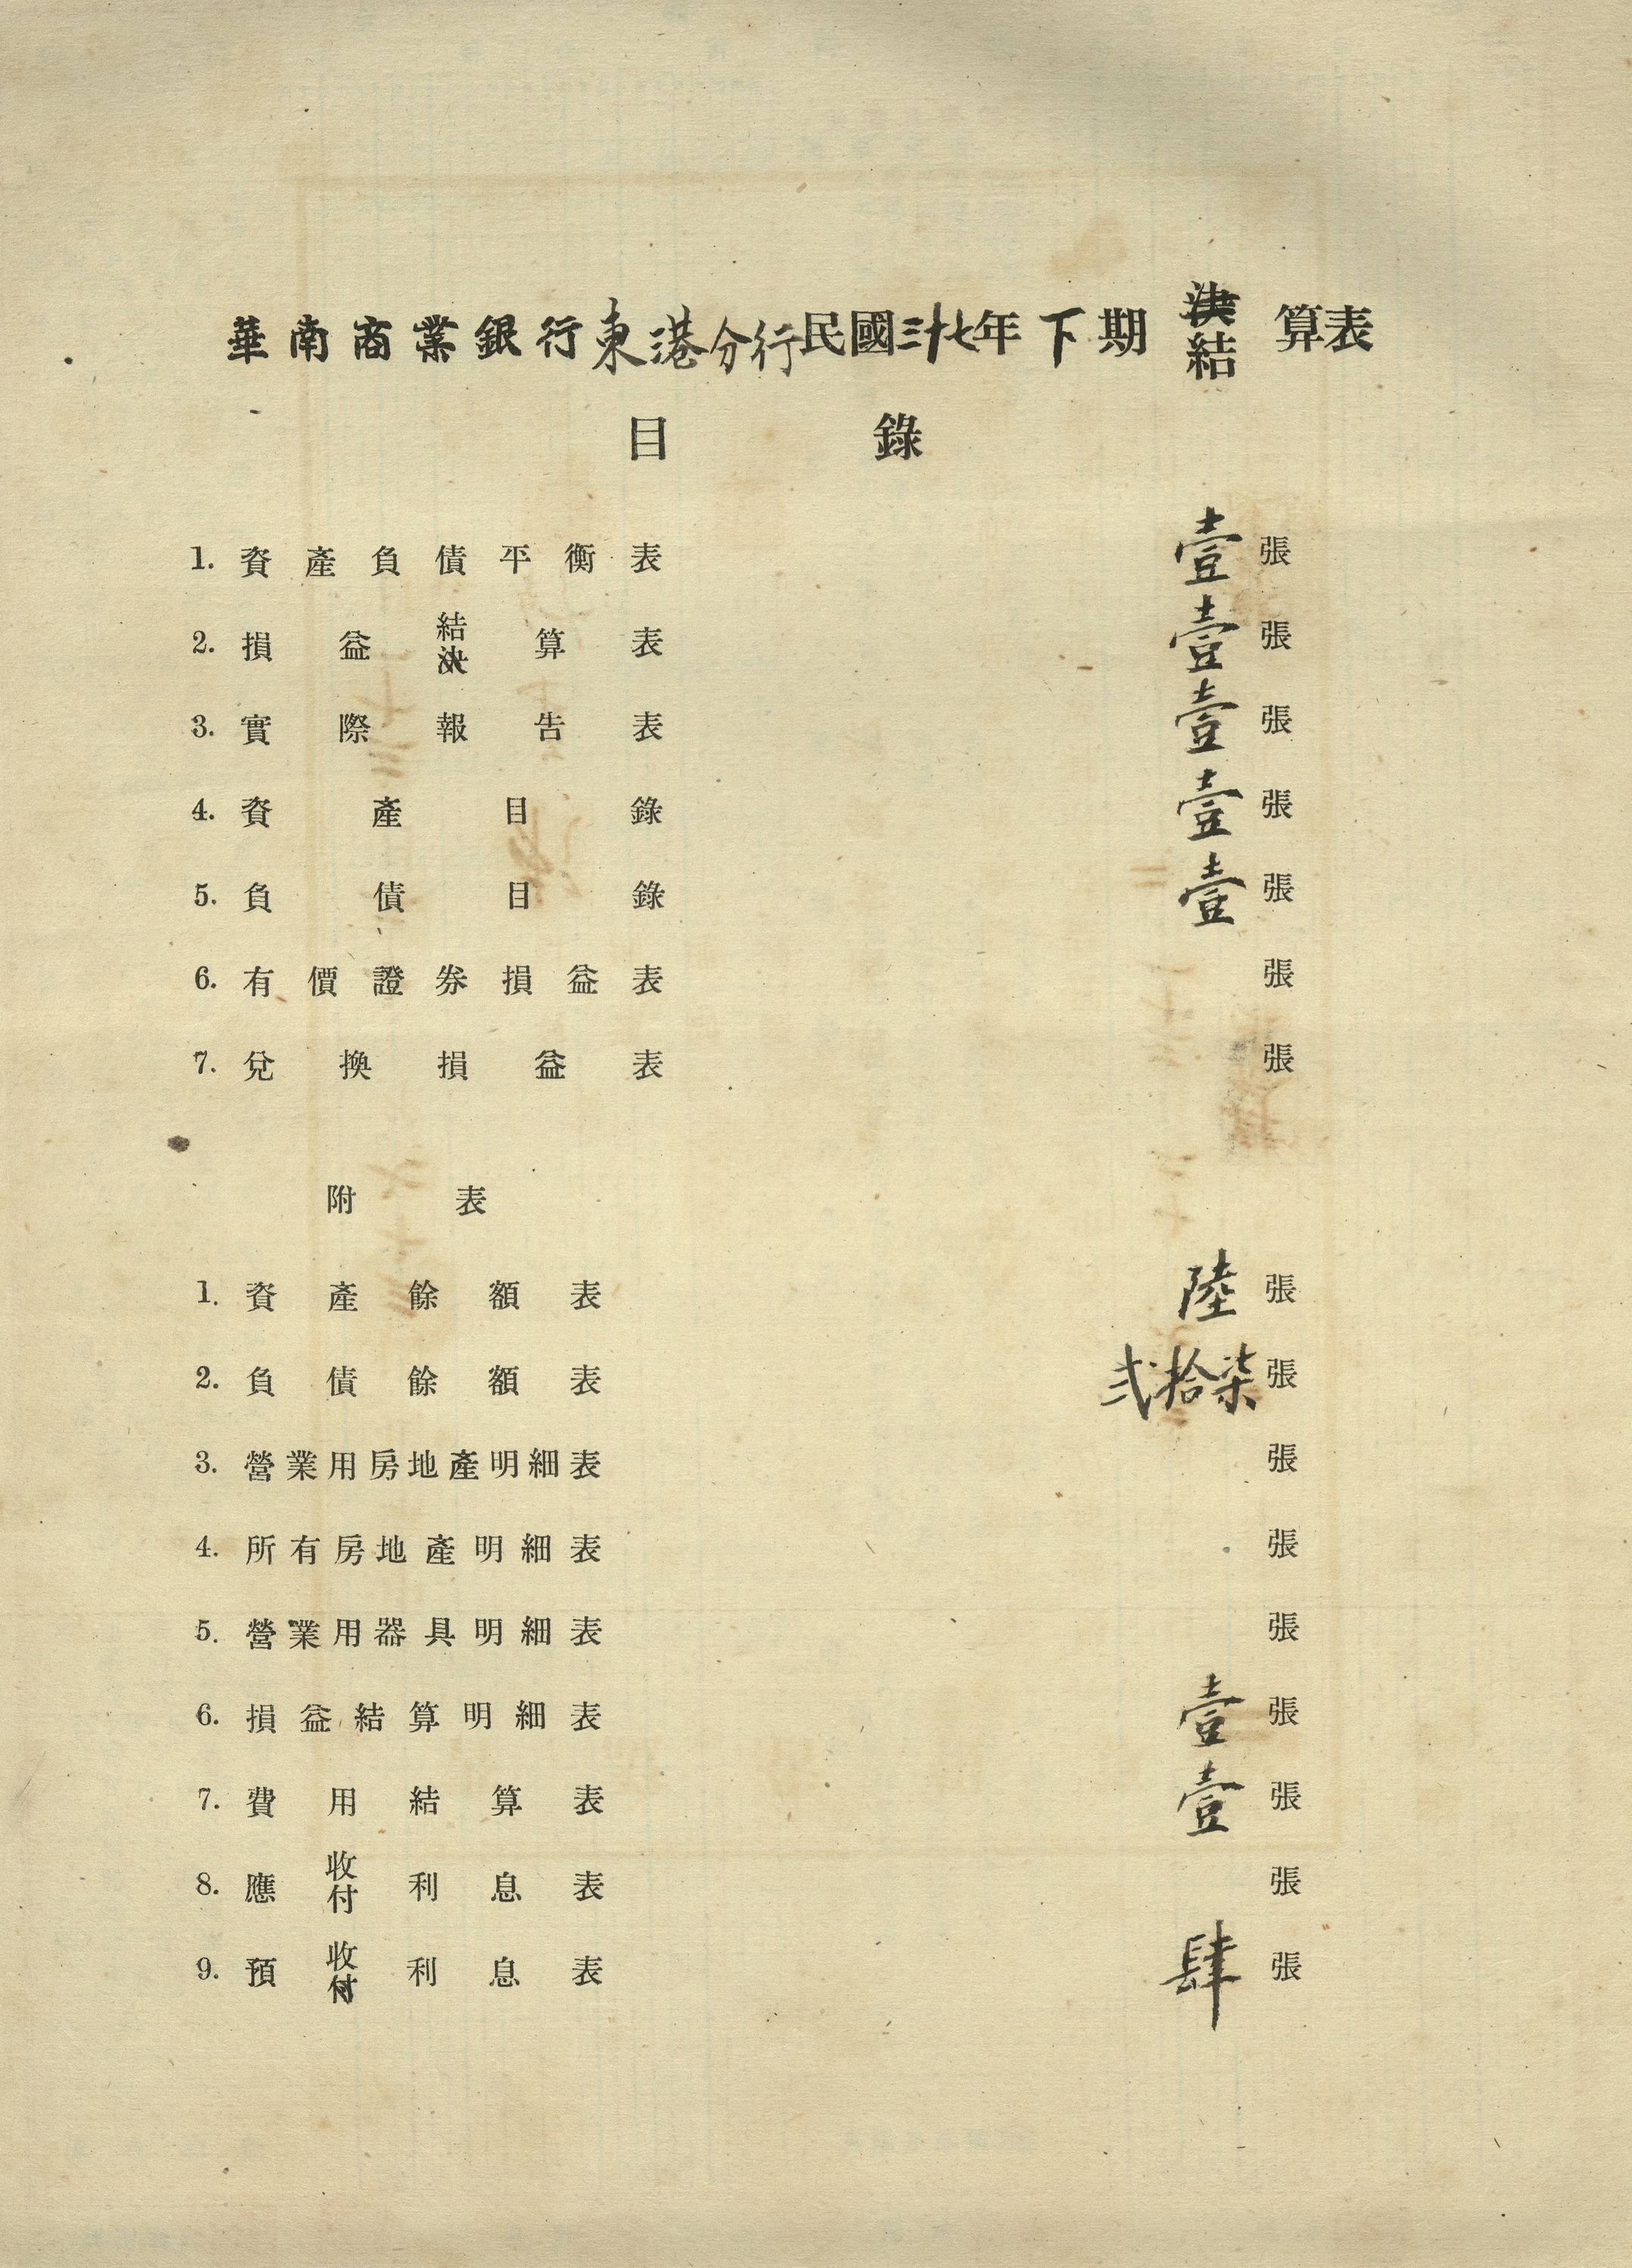 華南商業銀行東港分行民國三十七年下期決結算表
目錄
1. 資產負債平衡表 壹張
2. 損益結決算表 壹張
3. 實際報告表 壹張
4. 資產目錄 壹張
5. 負債目錄 壹張
6. 有價證券損益表 張
7. 兌換損益表 張
附表
1. 資產餘額表 陸張
2. 負債餘額表 弍拾柒張
3. 營業用房地產明細表 張
4. 所有房地產明細表 張
5. 營業用器具明細表 張
6. 損益結算明細表 壹張
7. 費用結算表 壹張
8. 應收付利息表 張
9. 預收付利息表 肆張